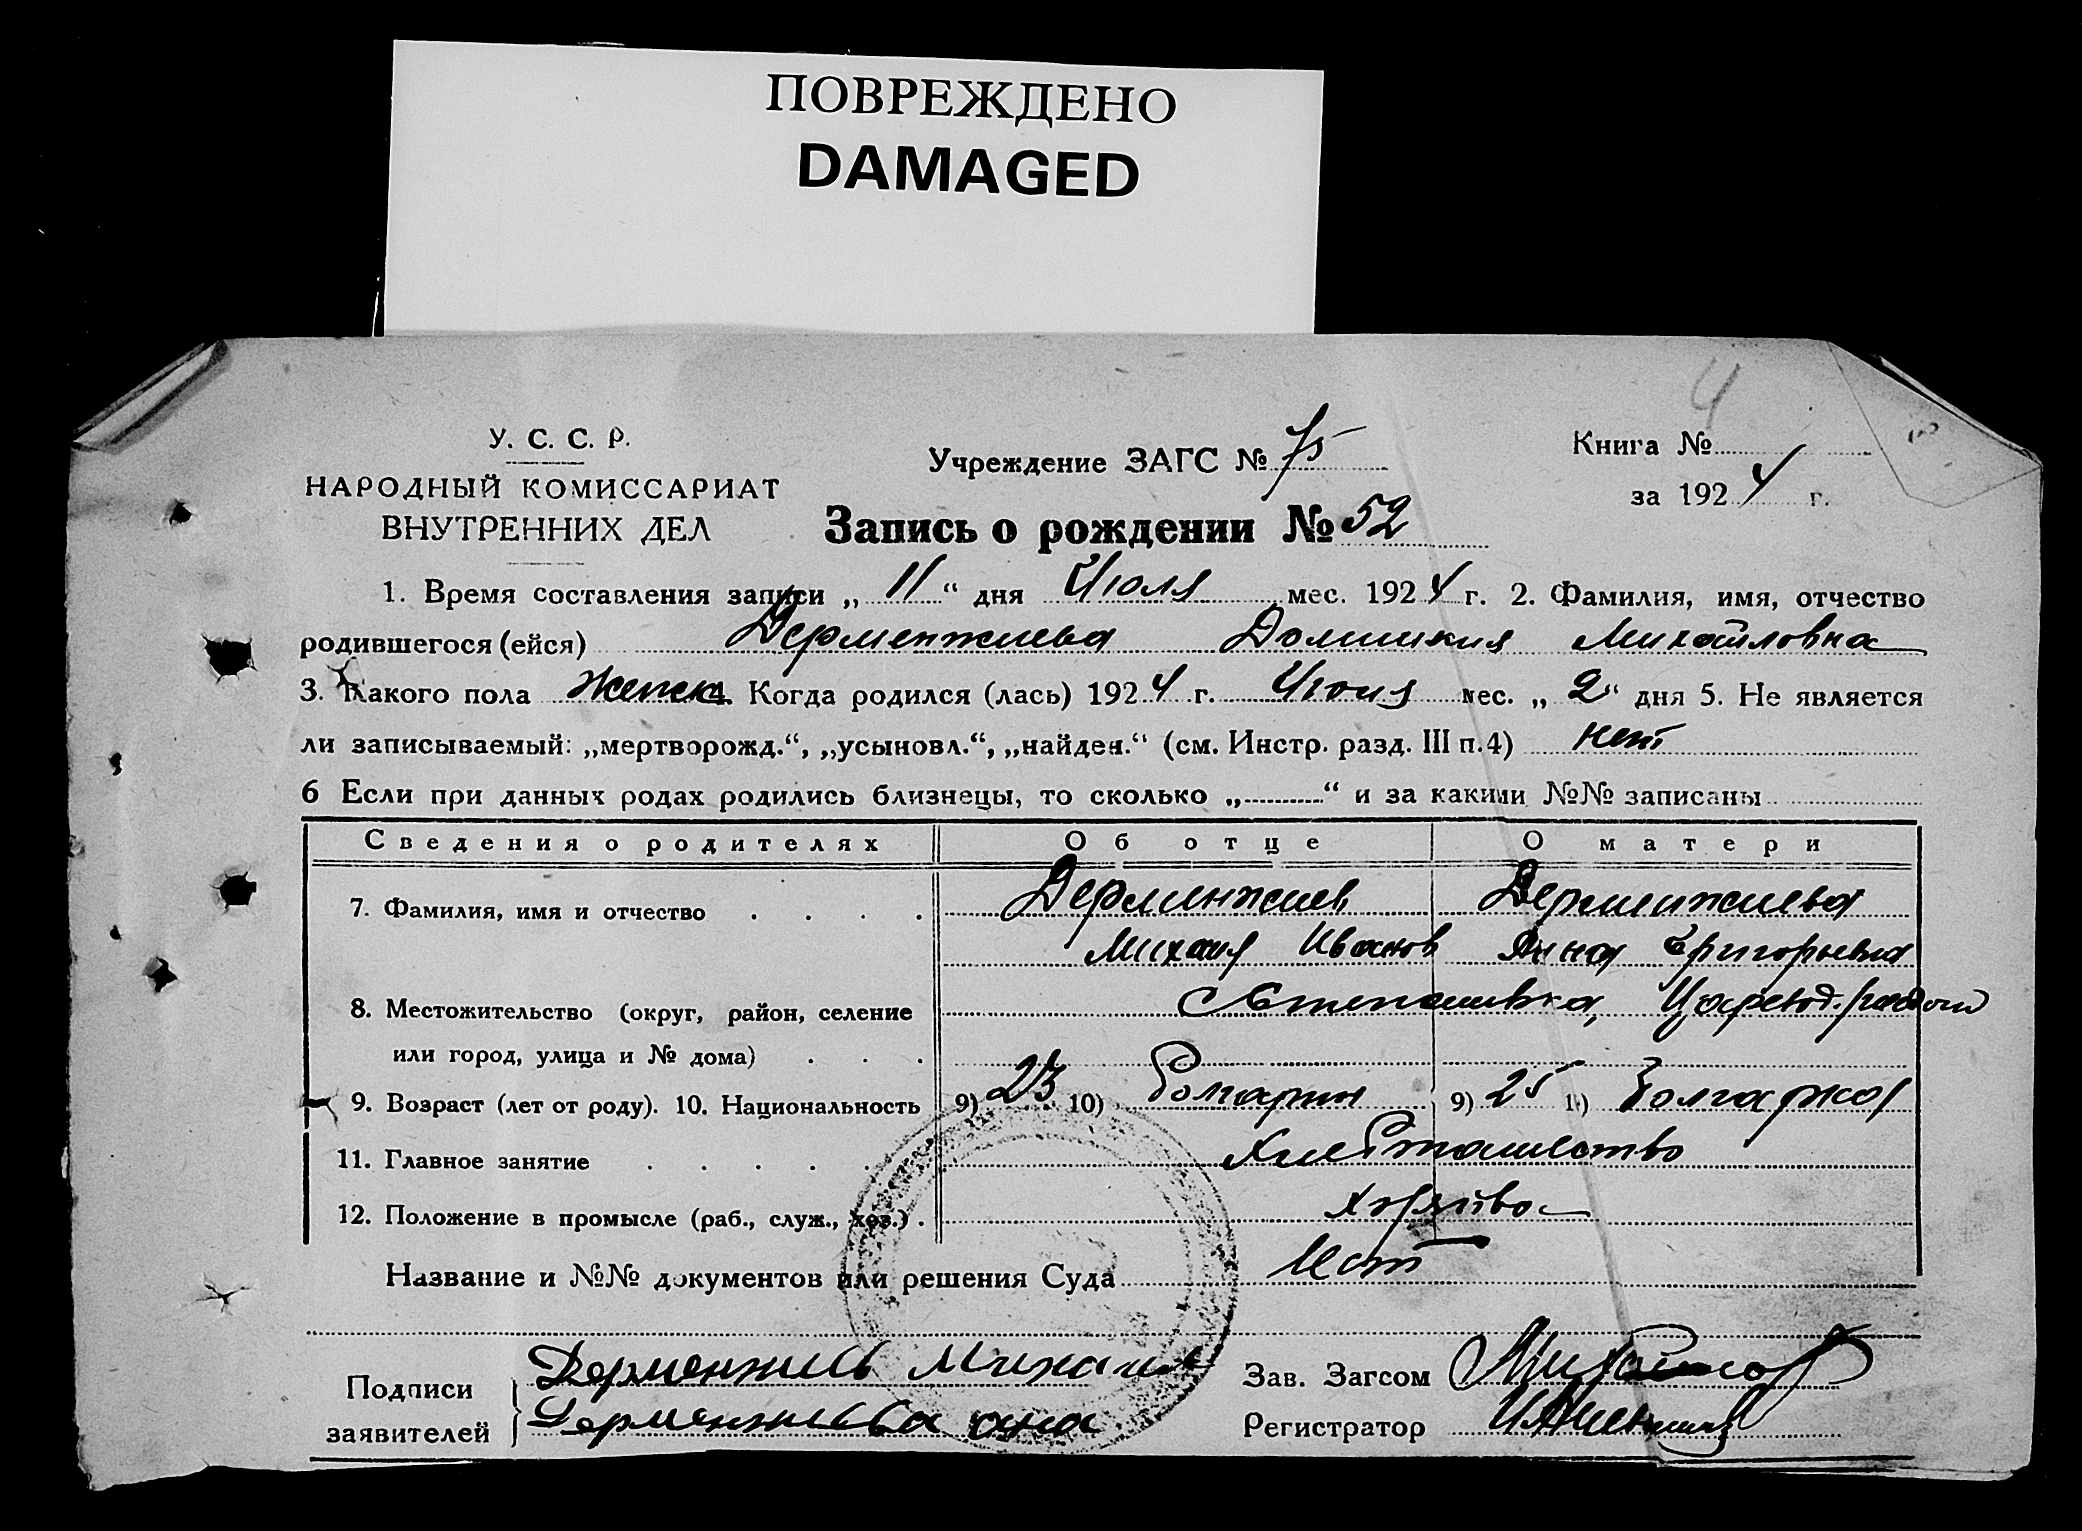 ПОВРЕЖДЕНО
DAMAGED
4
У. С. С. Р.
НАРОДНЫЙ КОМИССАРИАТ
ВНУТРЕННИХ ДЕЛ
Учреждение ЗАГС № 75
Запись о рождении № 52
Книга №
за 1924 г.
1. Время составления записи „ 11 “ дня Июля мес. 1924 г. 2. Фамилия, имя, отчество
родившегося (ейся) Дерменжиева Домникия Михайловна
3. Какого пола женск. Когда родился (лась) 1924 г. Июля мес. „ 2 “ дня 5. Не является
ли записываемый: „мертворожд.“, „усыновл.“, „найден.“ (см. Инстр. разд. III п.4) нет
6 Если при данных родах родились близнецы, то сколько „ “ и за какими №№ записаны
Сведения о родителях Об отце О матери
7. Фамилия, имя и отчество . . . . Дерменжиев Дерменжиева
Михаил Иванов Анна Григорьевна
8. Местожительство (округ, район, селение Степановка,
или город, улица и № дома) . . .
9. Возраст (лет от роду). 10. Национальность 9) 23 10) Болгарин 9) 25 1) Болгарка
11. Главное занятие . . . . . Хлебопашество
12. Положение в промысле (раб., служ., хоз.) .
Название и №№ документов или решения Суда Нет
Подписи Дерменжиев Михаил
заявителей Дерменжиева ана
Зав. Загсом
Регистратор